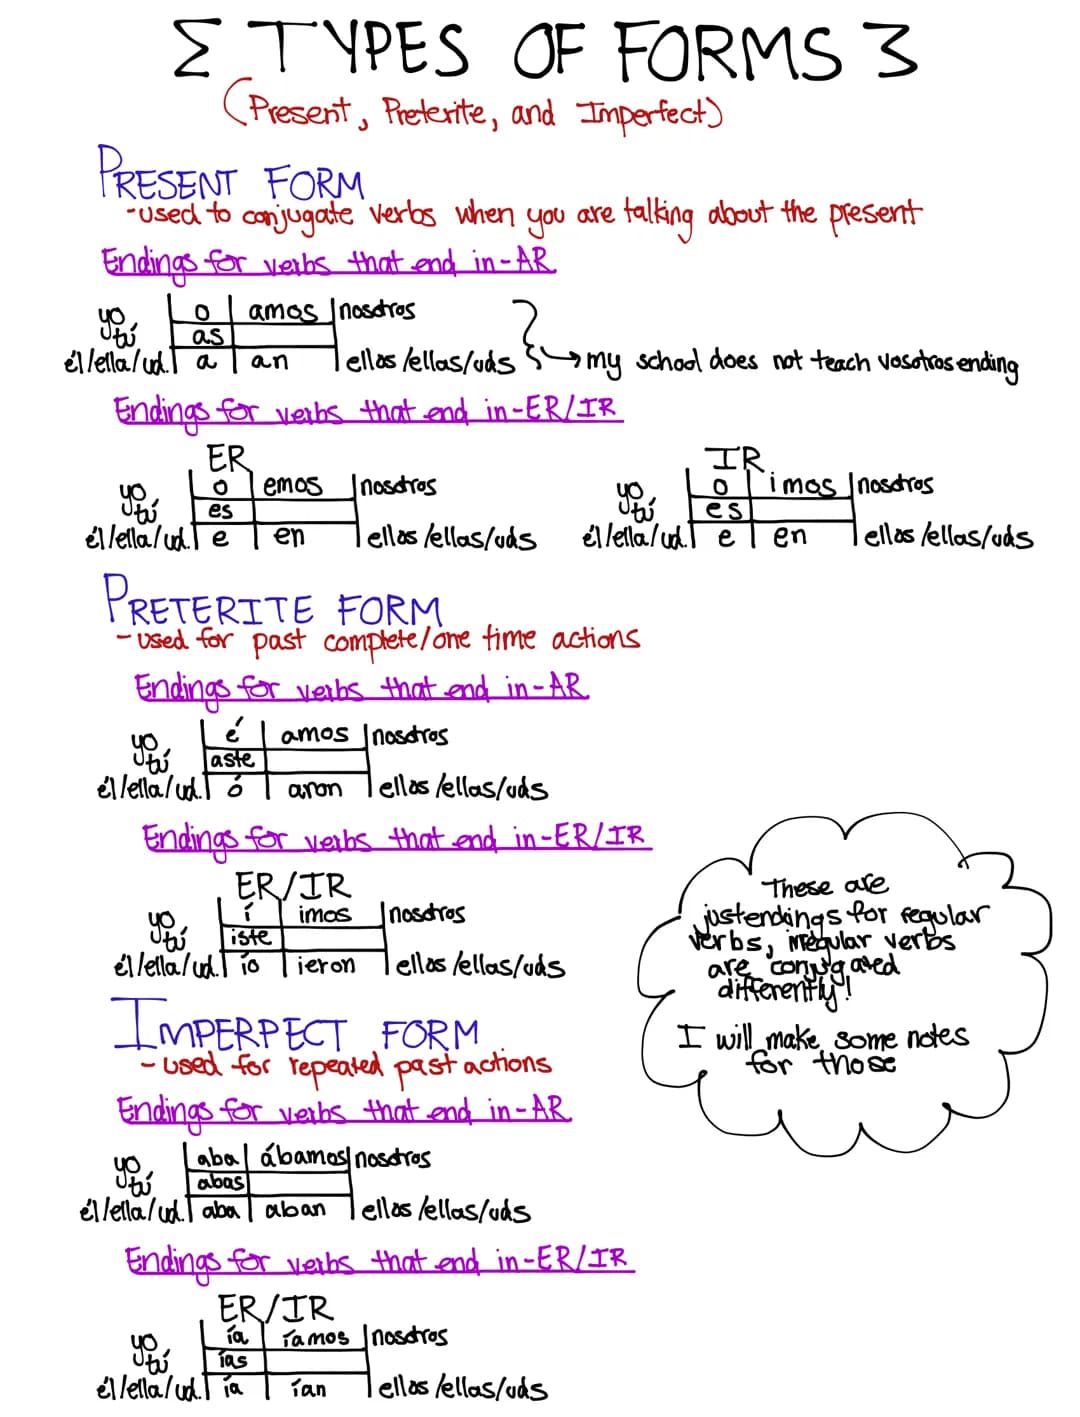 Σ TYPES OF FORMS 3
(Present, Preterite, and Imperfect)
PRESENT FORM
-used to conjugate verbs when you are talking about the present
Endings for verbs that end in -AR
yo o amos nosotros
tú as
él/ella/ud. a an ellos/ellas/uds
→ my school does not teach vosotros ending
Endings for verbs that end in -ER/IR
ER
yo o emos nosotros
tú es
él/ella/ud. e en ellos/ellas/uds
IR
yo o imos nosotros
tú es
él/ella/ud. e en ellos/ellas/uds
PRETERITE FORM
- used for past complete/one time actions
Endings for verbs that end in -AR
yo é amos nosotros
tú aste
él/ella/ud. ó aron ellos/ellas/uds
Endings for verbs that end in -ER/IR
ER/IR
yo í imos nosotros
tú iste
él/ella/ud. ío ieron ellos/ellas/uds
These are
just endings for regular
verbs, irregular verbs
are conjugated
differently!
I will make some notes
for those
IMPERPECT FORM
- used for repeated past actions
Endings for verbs that end in -AR
yo aba ábamos nosotros
tú abas
él/ella/ud. aba aban ellos/ellas/uds
Endings for verbs that end in -ER/IR
ER/IR
yo ía íamos nosotros
tú ías
él/ella/ud. ía ían ellos/ellas/uds